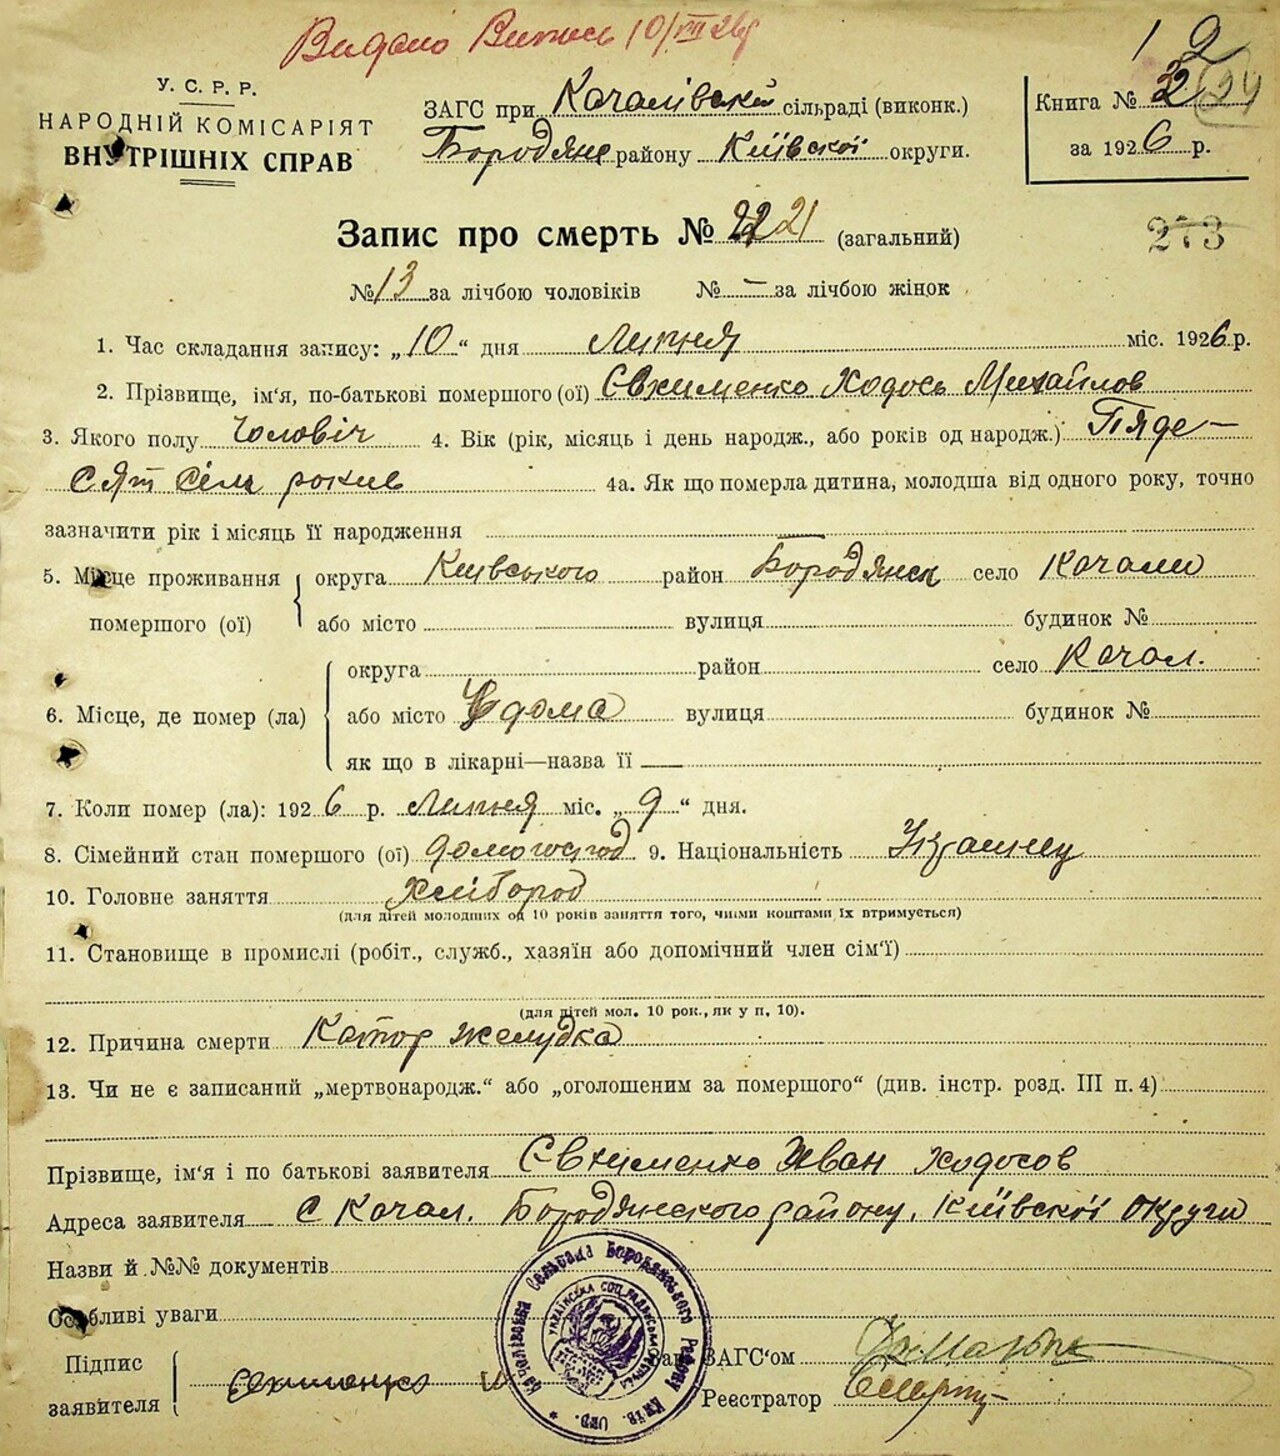 Видано Випись 10/VII 26р
1 2
У. С. Р. Р.
НАРОДНІЙ КОМІСАРІЯТ
ВНУТРІШНІХ СПРАВ
ЗАГС при Качалівській сільраді (виконк.)
Бородянс району Київської округи.
Книга № 32 24
за 1926 р.
Запис про смерть № 22 21 (загальний)
273
№ 13 за лічбою чоловіків № – за лічбою жінок
1. Час складання запису: „10“ дня Липня міс. 1926 р.
2. Прізвище, ім'я, по-батькові помершого (ої) Євхименко Ходось Михайлов
3. Якого полу Чоловіч 4. Вік (рік, місяць і день народж., або років од народж.) Пяде-
сят сім років 4а. Як що померла дитина, молодша від одного року, точно
зазначити рік і місяць її народження —
5. Місце проживання помершого (ої) округа Київського район Бородянск село Качали
або місто вулиця будинок №
6. Місце, де помер (ла) округа район село Качал.
або місто Удома вулиця будинок №
як що в лікарні—назва її —
7. Коли помер (ла): 1926 р. Липня міс. „9“ дня.
8. Сімейний стан помершого (ої) 9. Національність
10. Головне заняття Хлібород
(для дітей молодших од 10 років заняття того, чиїми коштами їх втримується)
11. Становище в промислі (робіт., служб., хазяїн або допомічний член сім'ї)
(для дітей мол. 10 рок., як у п. 10).
12. Причина смерти Катар желудка
13. Чи не є записаний „мертвонародж.“ або „оголошеним за помершого“ (див. інстр. розд. III п. 4)
Прізвище, ім'я і по батькові заявителя Євхименко Иван Ходосов
Адреса заявителя с Качал. Бородянского району, Київскої Округи
Назви й №№ документів
Особливі уваги
Підпис заявителя Євхименко И
Зав. ЗАГС'ом
Реєстратор
Качалівська Сельрада Бородянського Району Київ. Окр.
УКРАЇНСЬКА СОЦ. РАДЯНСЬКА